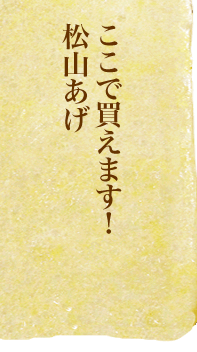 ここで買えます！
松山あげ